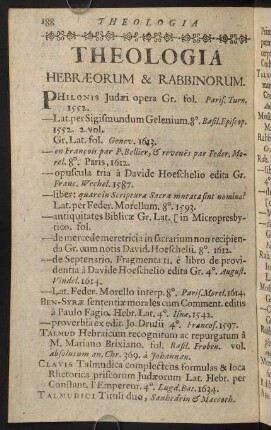 188 THEOLOGIA
THEOLOGIA
HEBRÆORUM & RABBINORUM.
PHILONIS Judæi opera Gr. fol. Paris. Turn.
1552.
—Lat. per Sigismundum Gelenium. 8°. Basil. Episcop.
1552. 2. vol.
Gr. Lat. fol. Genev. 1613.
—en François par P. Bellier, & revenës par Feder. Mo-
rel. 8°. Paris, 1612.
—opuscula tria à Davide Hoeschelio edita Gr.
Franc. Wechel. 1587.
—liber: quare in Scriptura Sacra mutata sint nomina?
Lat. per Feder. Morellum. 8°. 1593.
—antiquitates Biblicæ Gr. Lat. [in Micropresby-
tico. fol.
—de mercede meretricis in sacrarium non recipien-
da Gr. cum notis David. Hoeschelii. 8°. 1612.
—de Septenario. Fragmenta II. é libro de provi-
dentiâ à Davide Hoeschelio edita Gr. 4°. August.
Vindel. 1614.
—Lat. Feder. Morello interp. 8°. Paris. Morel. 1614.
BEN-SYRÆ sententiæ morales cum Comment. editis
à Paulo Fagio. Hebr. Lat. 4°. Isnæ, 1542.
—proverbia ex edit. Jo. Drusii 4°. Francof. 1597.
TALMUD Hebraicum recognitum ac repurgatum à
M. Mariano Brixiano. fol. Basil. Froben. vol.
absolutum an. Chr. 369. à Johannan.
CLAVIS Talmudica complectens formulas & loca
Rhetorica priscorum Judæorum Lat. Hebr. per
Constant. l'Empereur. 4°. Lugd. Bat. 1634.
TALMUDICI Tituli duo, Sanhedrin & Maccoth.